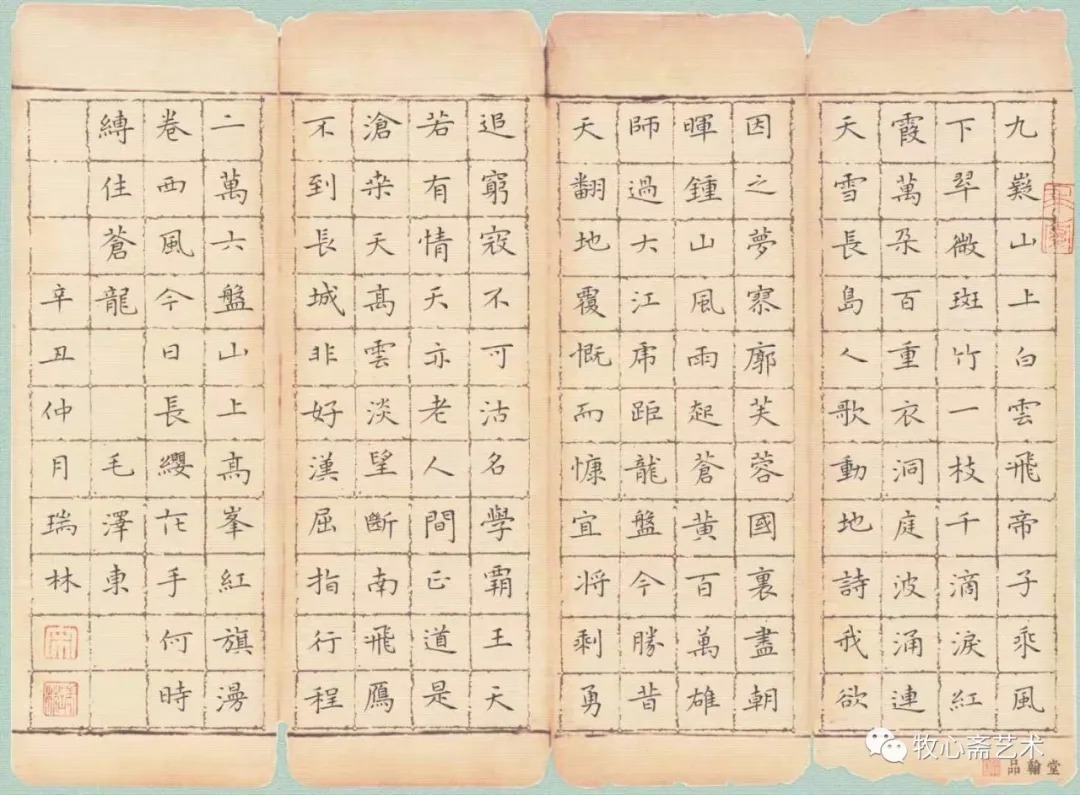 九嶷山上白雲飛帝子乘風
下翠微斑竹一枝千滴淚紅
霞萬朵百重衣洞庭波涌連
天雪長島人歌動地詩我欲
因之夢寥廓芙蓉國裏盡朝
暉鍾山風雨起蒼黃百萬雄
師過大江虎距龍盤今勝昔
天翻地覆慨而慷宜将剩勇
追窮寇不可沽名學霸王天
若有情天亦老人間正道是
滄桒天高雲淡望斷南飛鴈
不到長城非好漢屈指行程
二萬六盤山上高峯紅旗漫
卷西風今日長纓在手何時
縛住蒼龍 毛澤東
辛丑仲月瑞林
牧心斋艺术
品翰堂